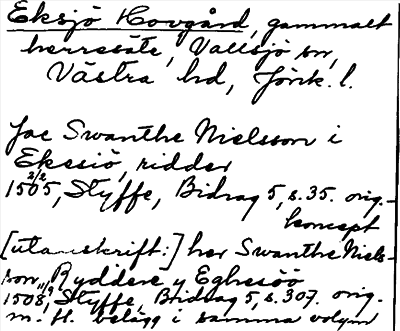 Eksjö Hovgård, gammalt
herresäte, Vallsjö sn,
Västra hd, Jönk. l.
Jac Swanthe Nielsson i
Eksesiö, ridder
2/2
1505, Styffe, Bidrag 5, s. 35. orig.-
koncept
[utanskrift:] her Swanthe Niels-
son, Ryddere y Eghesöö
11/9
1508, Styffe, Bidrag 5, s. 307. orig.
m. fl. belägg i samma volym